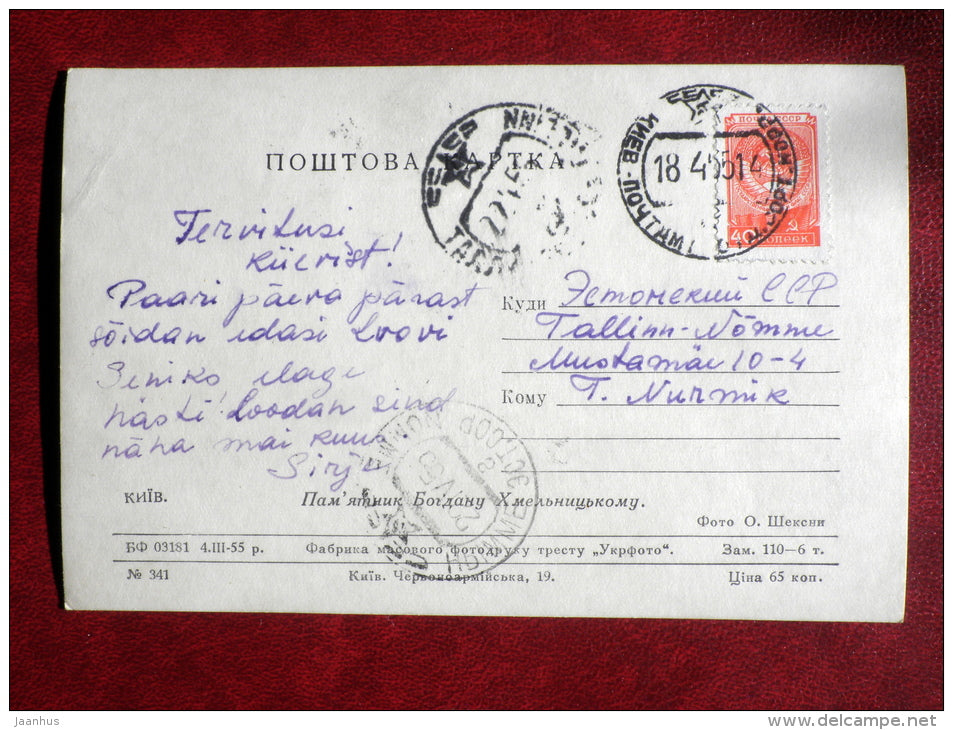 ПОШТОВА КАРТКА
КИЕВ-ПОЧТАМТ
18 4 55 14
ПОЧТА СССР
40 КОПЕЕК
TALLINN
Tervitusi
Kiievist!
Paari päeva pärast
sõidan edasi Lvovi
Seniks elage
hästi! Loodan sind
näha mai kuus.
Sirje
Куди Эстонский ССР
Tallinn-Nõmme
Mustamäe 10-4
Кому T. Nurmik
НЫММЕ ЭСТ.ССР
КИЇВ. Пам'ятник Богдану Хмельницькому.
Фото О. Шексни
БФ 03181 4.III-55 р. Фабрика масового фотодруку тресту „Укрфото“. Зам. 110—6 т.
№ 341 Київ. Червоноармійська, 19. Ціна 65 коп.
Jaanhus
www.delcampe.net